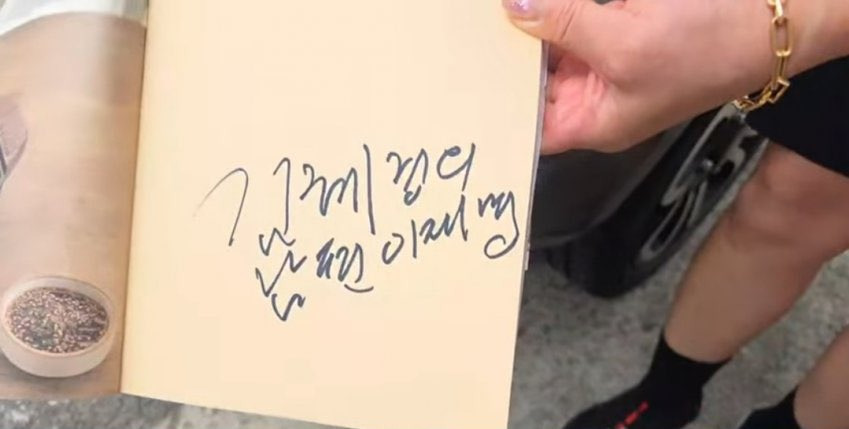 김혜경의
남편 이재명